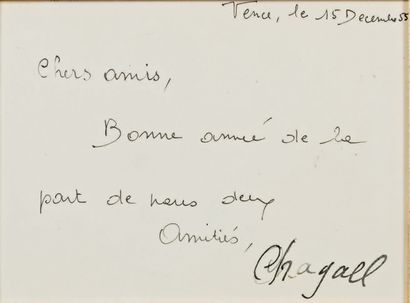 Vence, le 15 Decembre 55
Chers amis,
Bonne année de la
part de nous deux
Amitiés,
Chagall